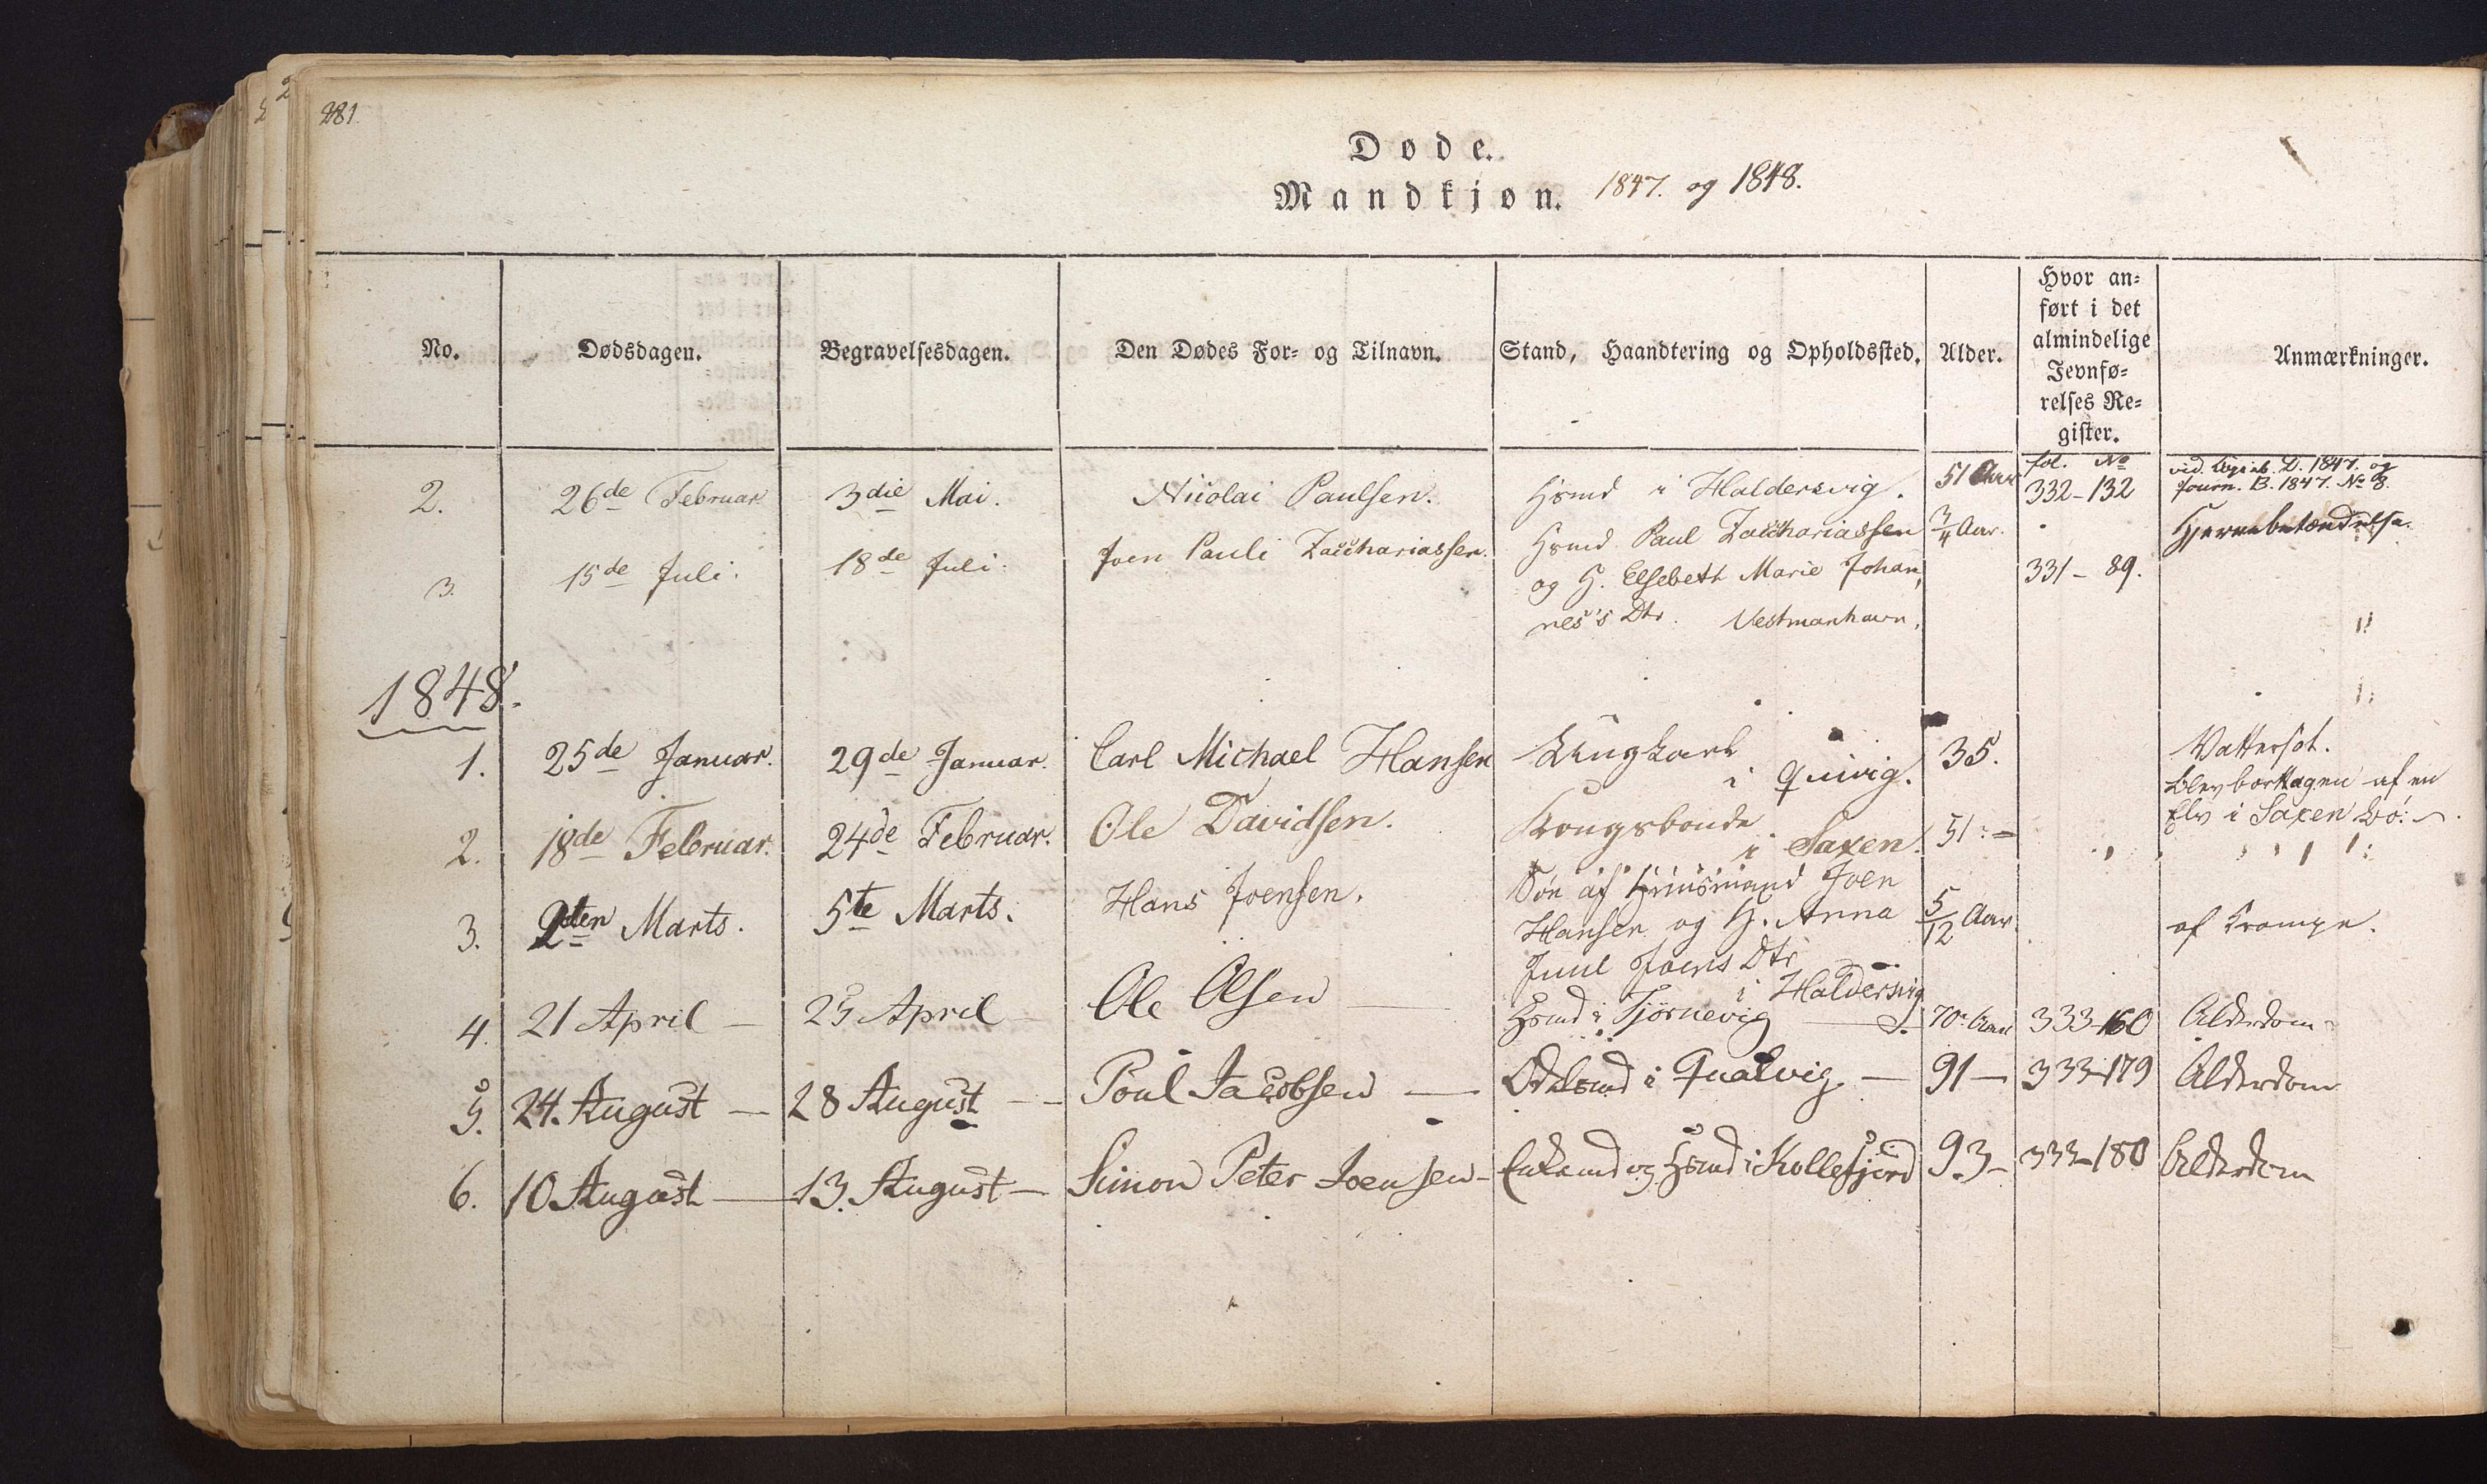 281.
Døde.
Mandkjøn. 1847. og 1848.
No. Dødsdagen. Begravelsesdagen. Den Dødes For- og Tilnavn. Stand, Haandtering og Opholdssted. Alder. Hvor an-
ført i det
almindelige
Jevnfø-
relses Re-
gister. Anmærkninger.
fol. No
2. 26de Februar 3die Mai. Nicolai Paulsen. Hsmd i Haldersvig. 51 Aar 332-132 vid. D. 1847. og
Journ. B. 1847. No 8.
3. 15de Juli. 18de Juli. Joen Pauli Zacchariassen. Hsmd Paul Zacchariassen 3/4 Aar. 331-89. Hjernebetændelse.
og H. Elsebeth Marie Johan,
nes's Dtr. Vestmanhavn.
1848.
1. 25de Januar. 29de Januar. Carl Michael Hansen Ungkarl
i Qvivig. 35. Vattersot.
2. 18de Februar. 24de Februar. Ole Davidsen. Kongsbonde
i Saxen. 51:- blev borttagen af en
Elv i Saxen Bø:
3. 2den Marts. 5te Marts. Hans Joensen. Søn af Huusmand Joen
Hansen og H. Anna 5/12 Aar. af Krampe.
Juul Joens Dtr
i Haldersvig
4. 21 April - 25 April - Ole Olsen - Hsmd i Tjørnevig - 70 Aar 333-160 Alderdom
5. 24. August - 28 August - Poul Jacobsen - Odelsmd i Qvalvig - 91 - 333-179 Alderdom
6. 10 August - 13. August - Simon Peter Joensen - Enkemd og Hsmd i Kollefjord 93- 333-180 Alderdom